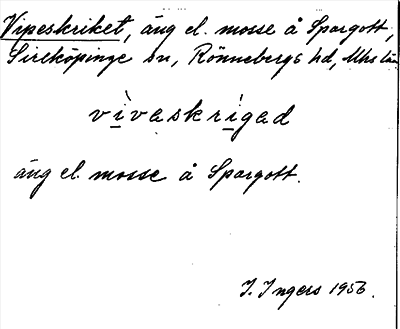 Vipeskriket, äng el. mosse å Spargott,
Sireköpinge sn, Rönnebergs hd, Mhs län
vìvaskrìgad
äng el. mosse å Spargott.
I. Ingers 1956.